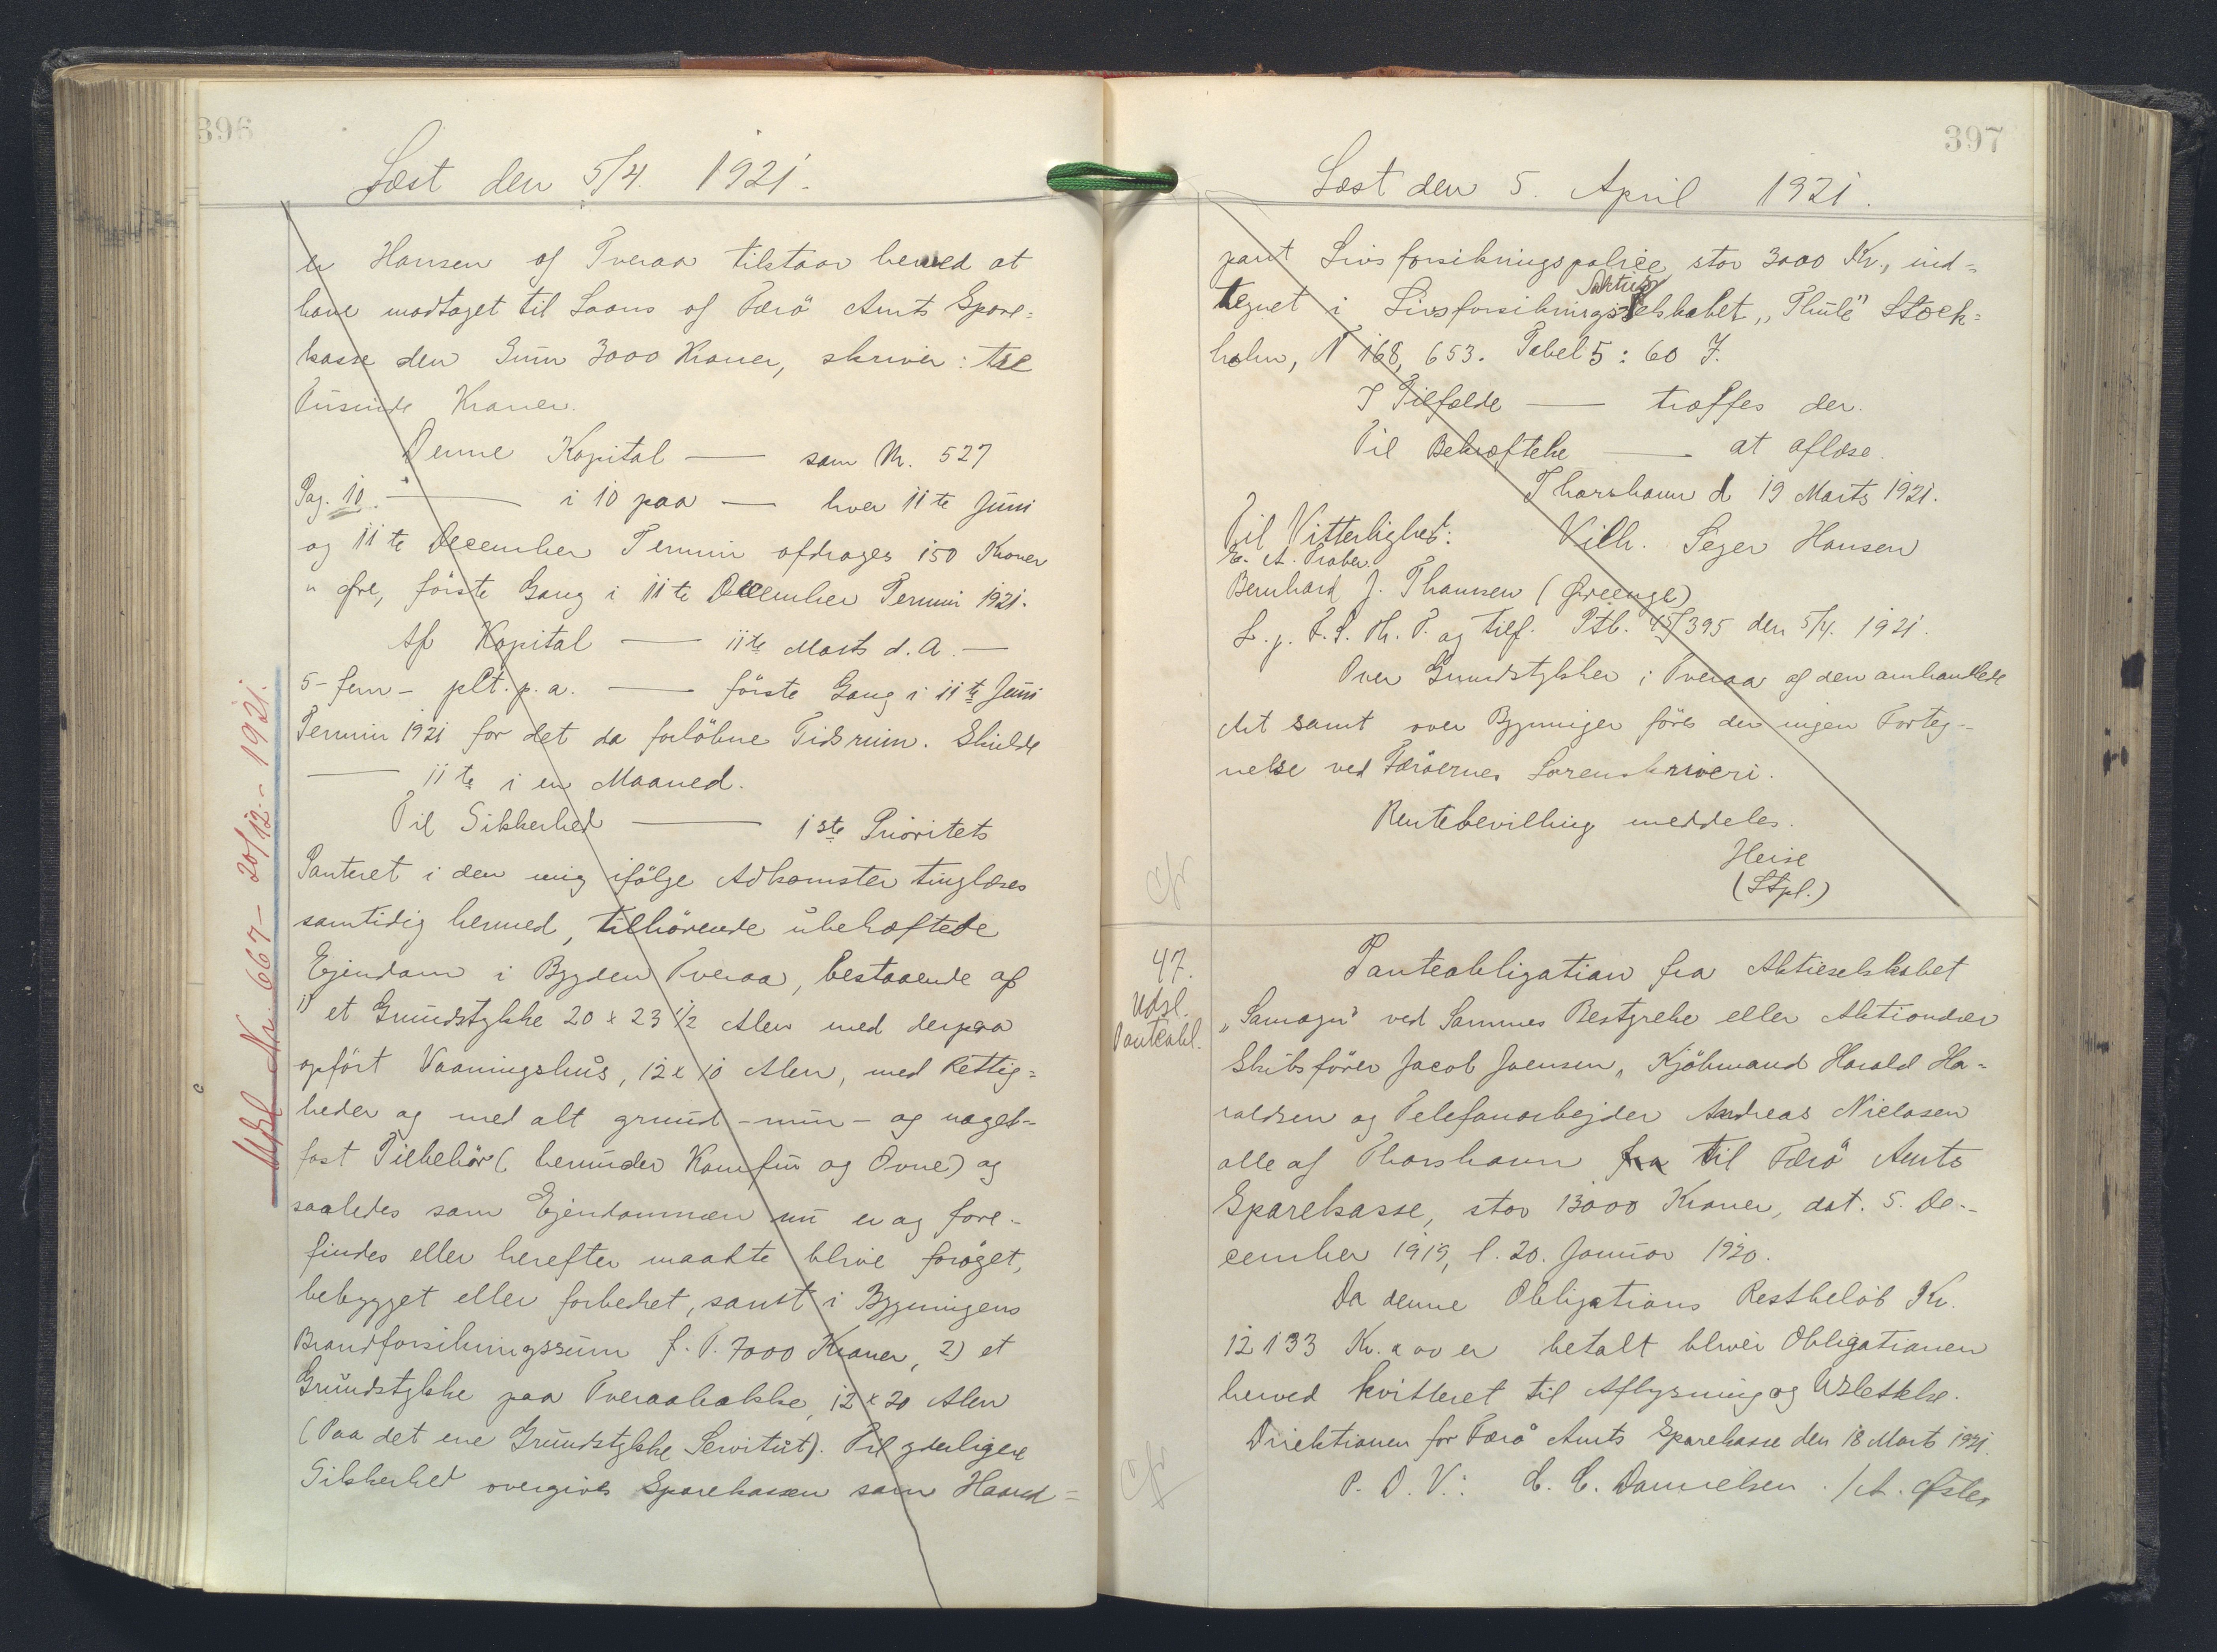 396
Læst den 5/4. 1921.
er Hansen af Tveraa tilstaar herved at
have modtaget til Laans af Færö Amts Spare=
kasse den Sum 3000 Kroner, skriver: tre
Tusinde Kroner.
Denne Kapital — som Nr. 527
Pag. 10. — i 10 paa — hver 11te Juni
og 11te December Termin afdrages 150 Kroner
" Øre, förste Gang i 11te December Termin 1921.
Af Kapital — 11te Marts d. A. —
5 - fem - pCt. p. a. — förste Gang i 11te Juni
Termin 1921 for det da forlöbne Tidsrum. Skulde
— 11te i en Maaned.
Til Sikkerhed — 1ste Prioritets
Panteret i den mig ifölge Adkomster tinglæses
samtidig hermed, tilhörende ubehæftede
Ejendom i Bygden Tveraa, bestaaende af
1) et Grundstykke 20 x 23 1/2 Alen med derpaa
opfört Vaaningshus, 12 x 10 Alen, med Rettig=
heder og med alt grund - mur - og nagel-
fast Tilbehör (herunder Komfur og Ovne) og
saaledes som Ejendommen nu er og fore-
findes eller herefter maatte blive foröget,
bebygget eller forbedret, samt i Bygningens
Brandforsikringssum f. T. 7000 Kroner, 2) et
Grundstykke paa Tveraabakke, 12 x 20 Alen
(Paa det ene Grundstykke Servitut). Til yderligere
Sikkerhed overgives Sparekassen som Haand=
Udsl. Nr. 667 - 20/12. - 1921.
397
Læst den 5. April 1921.
pant Livsforsikringspolice stor 3000 Kr., ind=
Aktie
tegnet i Livsforsikringsselskabet "Thule" Stock=
holm, N 168,653. Tabel 5: 60 F.
I Tilfælde — træffes der.
Til Bekræftelse — at aflæse.
Thorshavn d 19 Marts 1921.
Til Vitterlighed: Vilh. Seger Hansen
E. A. Traber.
Bernhard J. Thomsen (Øreenge)
L. p. F. S. Th. T. og tilf. Ptb. 15/395 den 5/4. 1921.
Over Grundstykker i Tveraa af den omhandlede
Art samt over Bygninger föres der ingen Forteg-
nelse ved Færöernes Sorenskriveri.
Rentebevilling meddeles.
Heise
(Stpl.)
Cfr
47.
Udsl.
Panteobl.
Panteobligation fra Aktieselskabet
"Samagn" ved Sammes Bestyrelse eller Aktionærer
Skibsförer Jacob Joensen, Kjöbmand Harald Ha-
raldsen og Telefonarbejder Andreas Niclasen
alle af Thorshavn fra til Færö Amts
Sparekasse, stor 13000 Kroner, dat. 5. De-
cember 1919, l. 20. Januar 1920.
Da denne Obligations Restbelöb Kr.
12133 Kr. x oo er betalt bliver Obligationen
herved kvitteret til Aflysning og Udslettelse.
Direktionen for Færö Amts Sparekasse den 18 Marts 1921.
P. D. V.: C. C. Danielsen. / A. Øster
Cfr